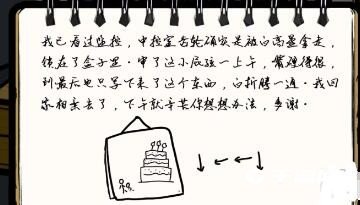 我已看过监控，中控室齿轮确实是被白高兴拿走，
锁在了盒子里。审了这小屁孩一上午，觉难得很，
到最后也只写下来了这个东西，白折腾一通。我回
家相亲去了，下午就辛苦你想想办法，多谢。
↓←←↓